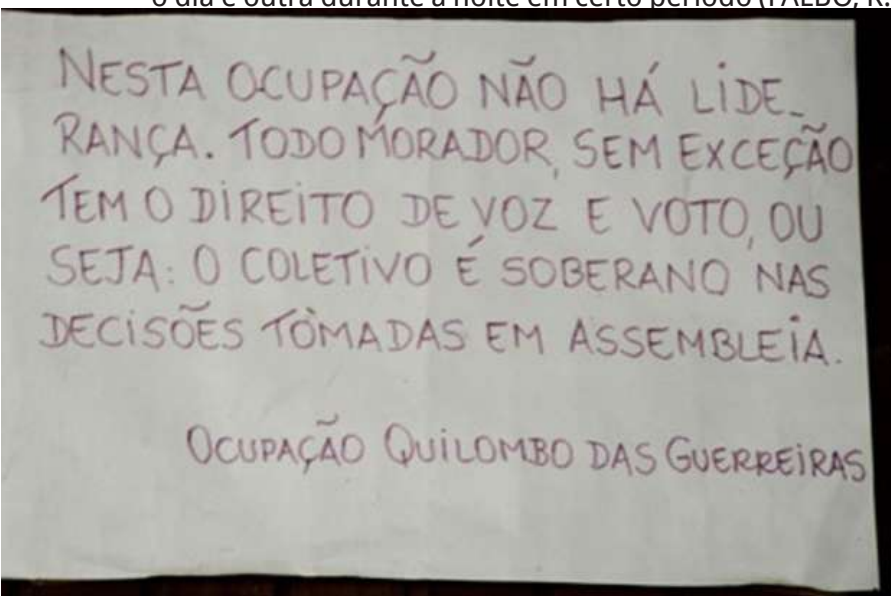 o dia e outra durante a noite em certo período (FALBO, R.
NESTA OCUPAÇÃO NÃO HÁ LIDE-
RANÇA. TODO MORADOR, SEM EXCEÇÃO
TEM O DIREITO DE VOZ E VOTO, OU
SEJA: O COLETIVO É SOBERANO NAS
DECISÕES TOMADAS EM ASSEMBLEIA.
OCUPAÇÃO QUILOMBO DAS GUERREIRAS